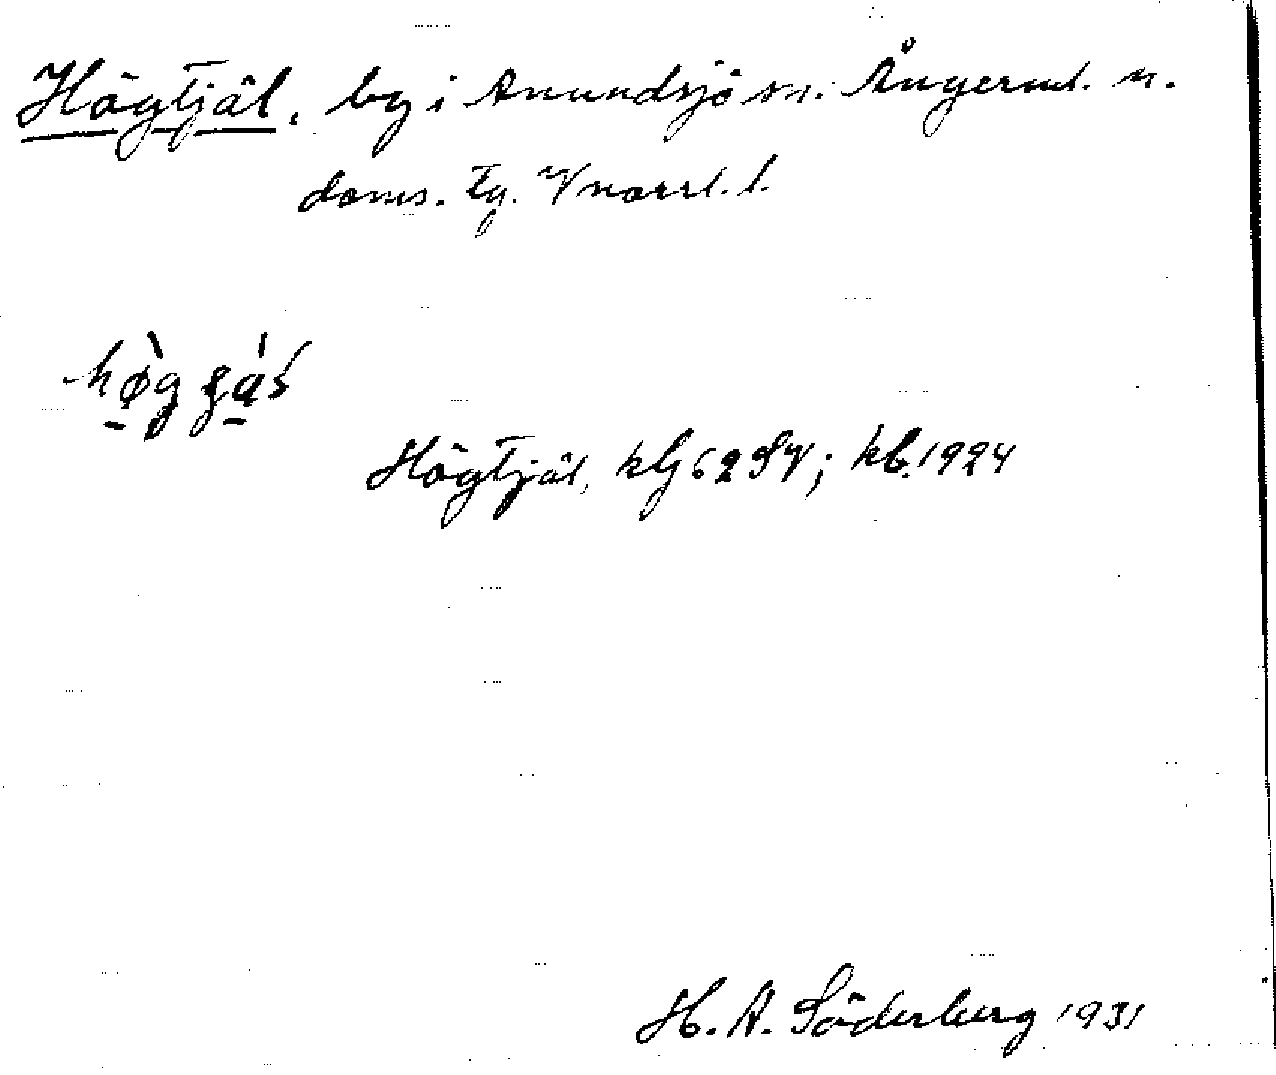 Högtjäl, by i Anundsjö sn. Ångerml. n.
doms. tg. Vnorrl. l.
Högtjäl, kbl 62 SV; kb. 1924
H. A. Söderberg 1931